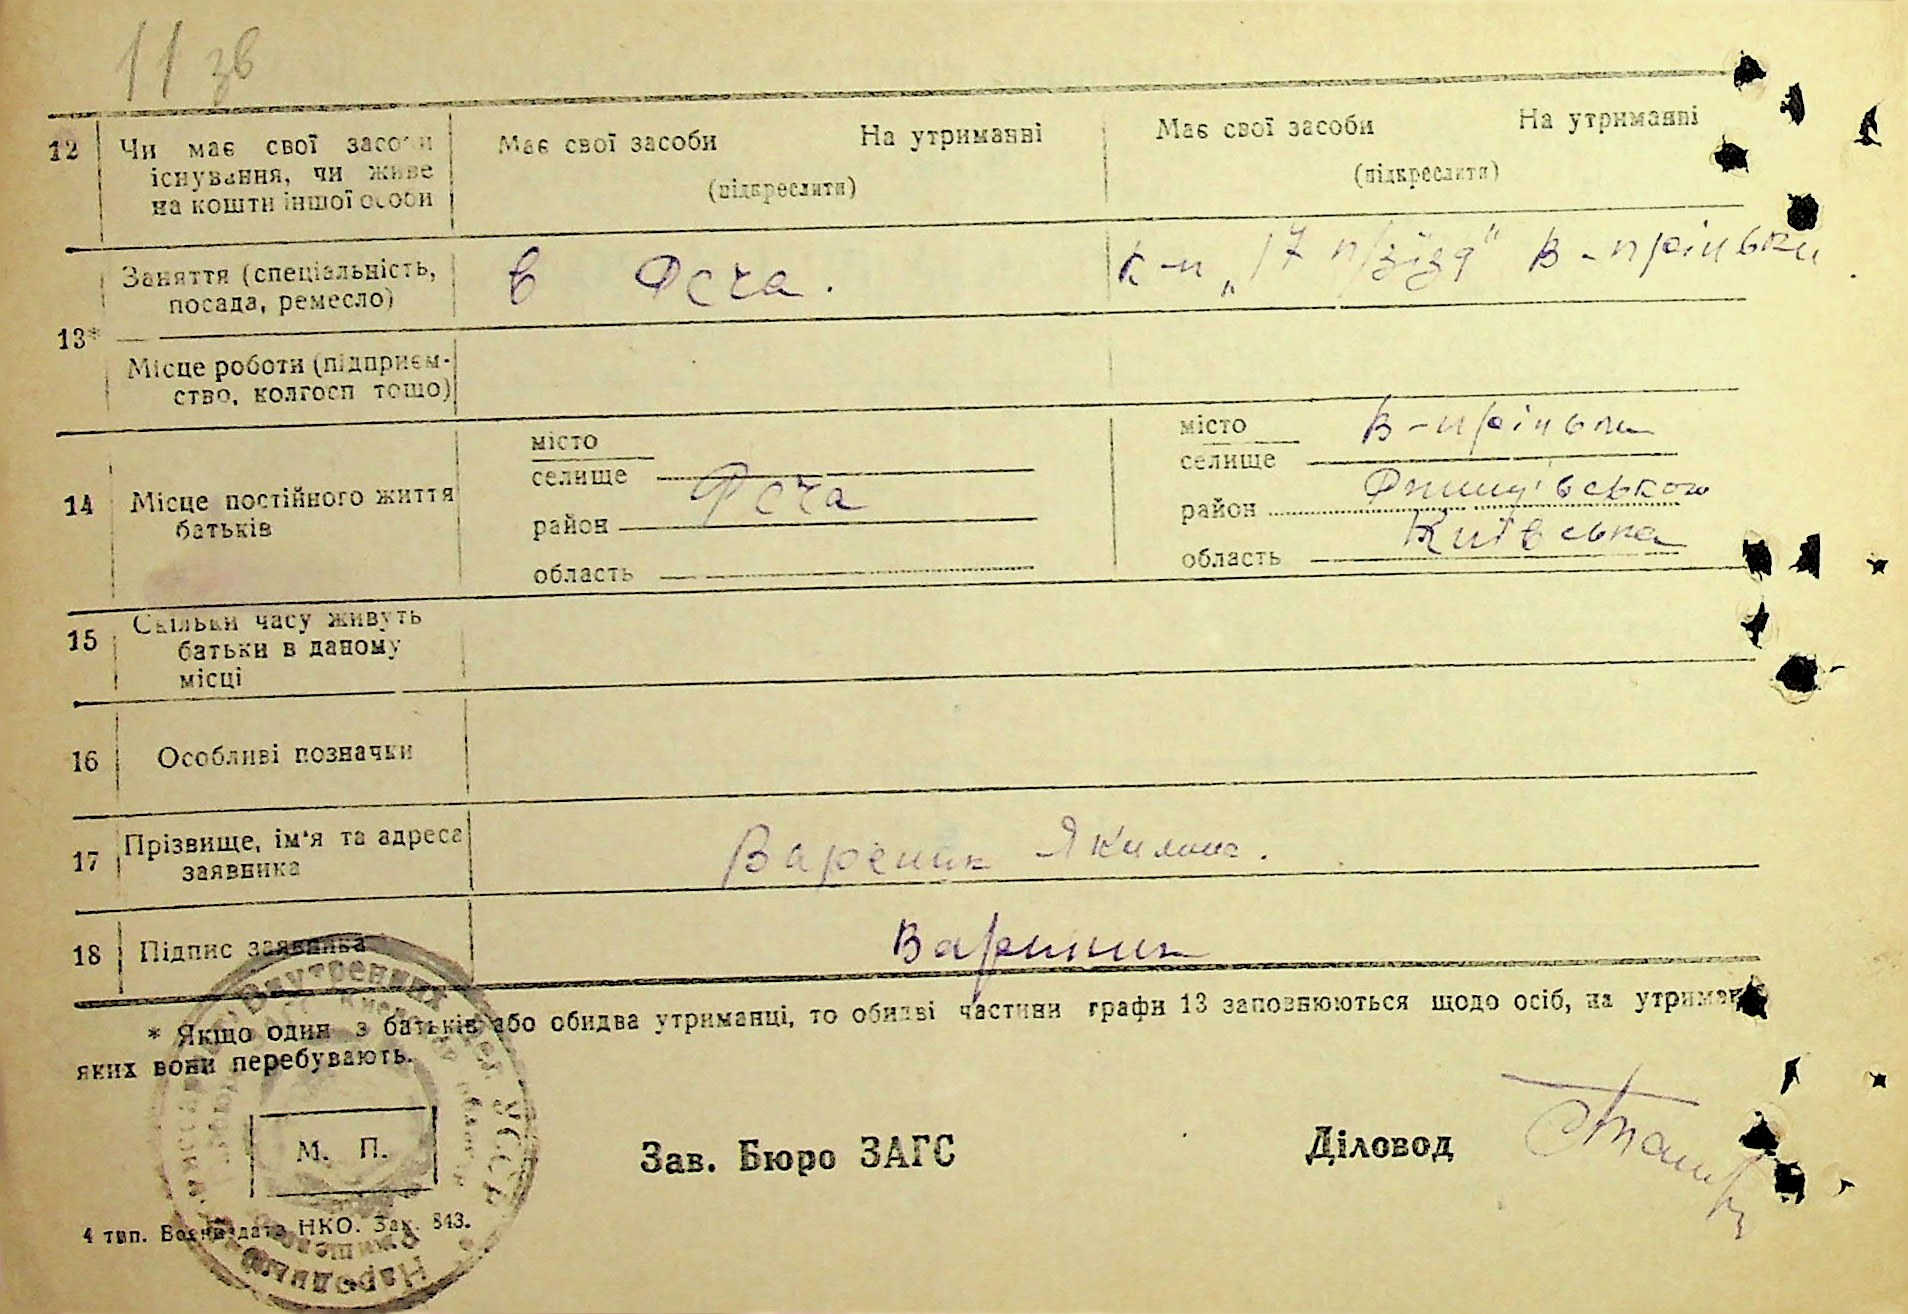 11 зв
12 Чи має свої засоби
існування, чи живе
на кошти іншої особи
Має свої засоби На утриманні
(підкреслити)
Має свої засоби На утриманні
(підкреслити)
13*
Заняття (спеціальність,
посада, ремесло)
в РСЧА.
к-п „17 п/зїзд“ В-Прільки
Місце роботи (підприєм-
ство, колгосп тощо)
14 Місце постійного життя
батьків
місто
селище
РСЧА
район
область
місто В-Прільки
селище
район
область Київська
15 Скільки часу живуть
батьки в даному
місці
16 Особливі позначки
17 Прізвище, ім'я та адреса
заявника
Вареник Якилина.
18 Підпис заявника
Вареник
* Якщо один з батьків або обидва утриманці, то обидві частини графи 13 заповнюються щодо осіб, на утриман
яких вони перебувають.
М. П.
Зав. Бюро ЗАГС Діловод
4 тип. Воениздата НКО. Зак. 843.
Внутренних Дел УССР
Народный